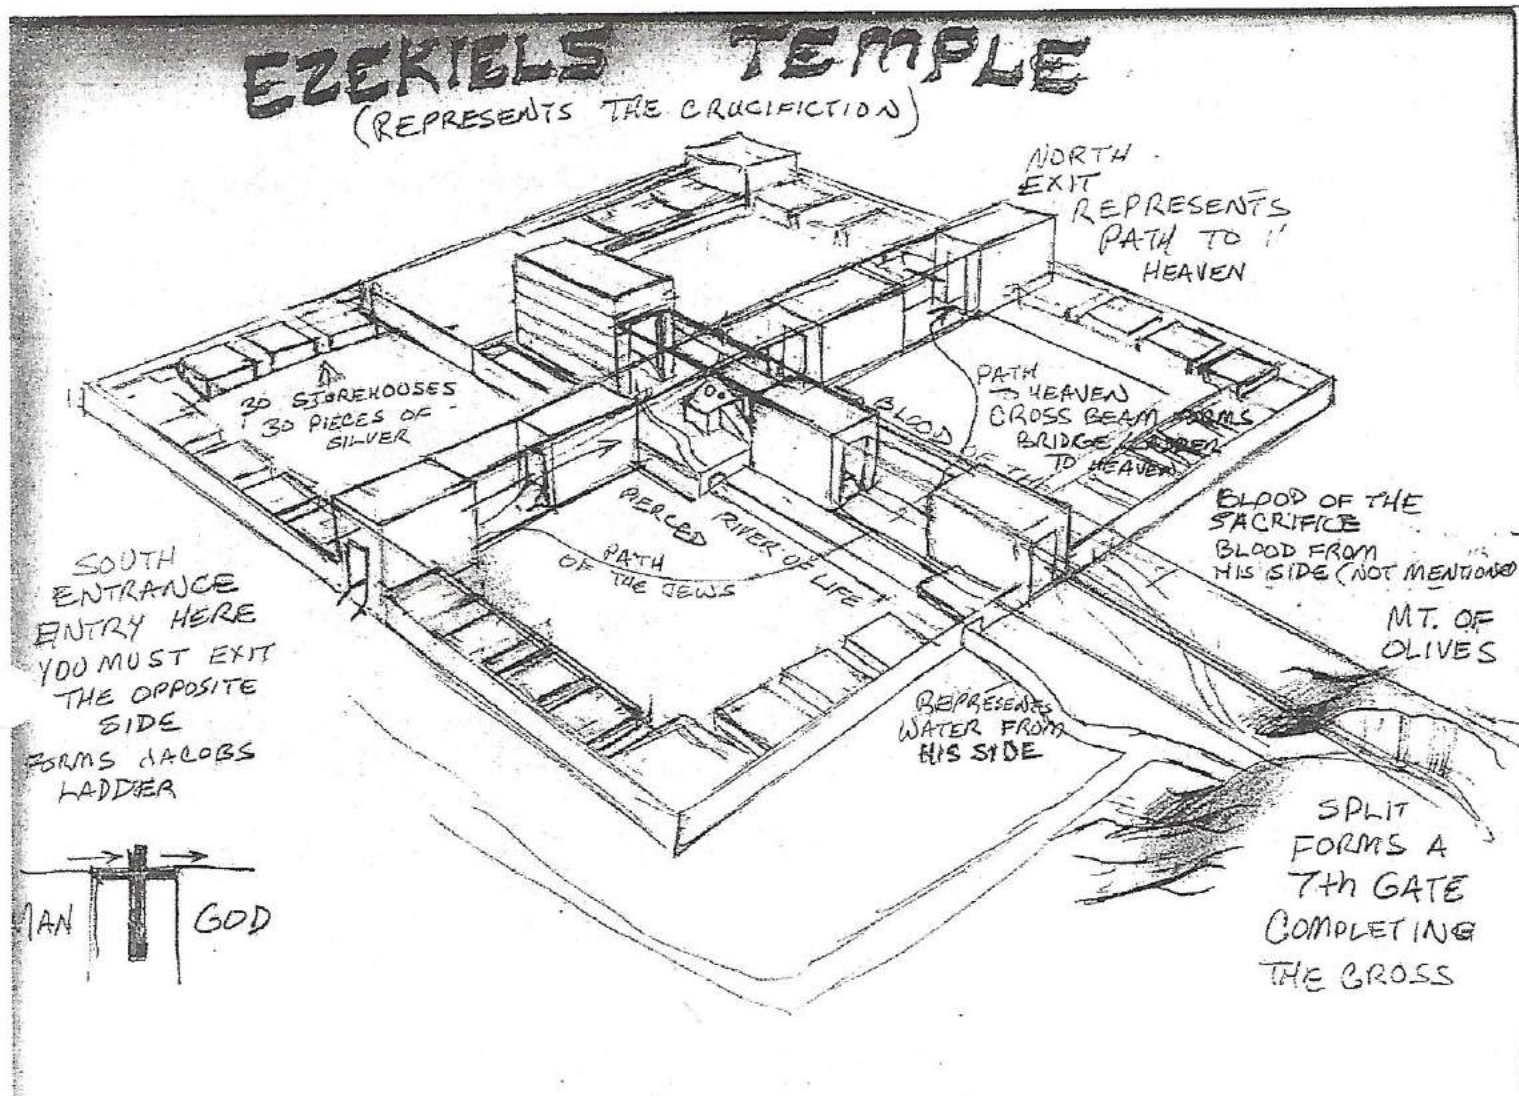 EZEKIELS TEMPLE
(REPRESENTS THE CRUCIFICTION)
NORTH
EXIT
REPRESENTS
PATH TO
HEAVEN
30 STOREHOUSES
30 PIECES OF
SILVER
PATH
TO HEAVEN
CROSS BEAM FORMS
BRIDGE LADDER
TO HEAVEN
BLOOD OF THE
PIERCED
RIVER OF LIFE
PATH
OF THE JEWS
BLOOD OF THE
SACRIFICE
BLOOD FROM
HIS SIDE (NOT MENTIONED
MT. OF
OLIVES
SOUTH
ENTRANCE
ENTRY HERE
YOU MUST EXIT
THE OPPOSITE
SIDE
FORMS JACOBS
LADDER
REPRESENTS
WATER FROM
HIS SIDE
SPLIT
FORMS A
7th GATE
COMPLETING
THE CROSS
MAN
GOD